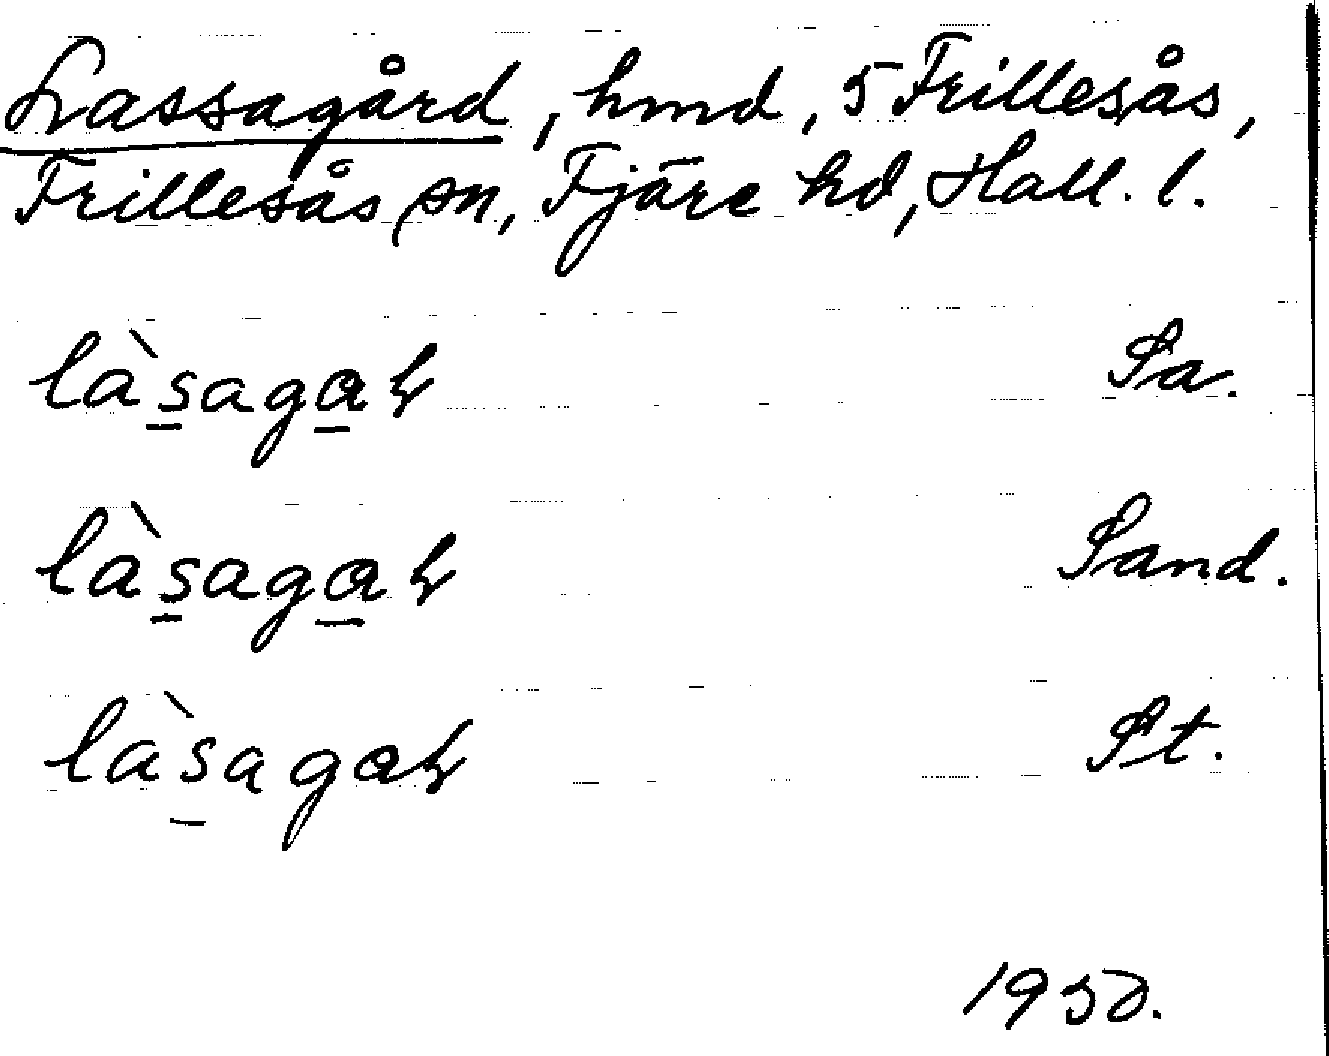 Lassagård, hmd, 5 Frillesås,
Frillesås sn, Fjäre hd, Hall. l.
làs̲aga̲r Sa.
làs̲aga̲r Sand.
làs̲agar St.
1950.